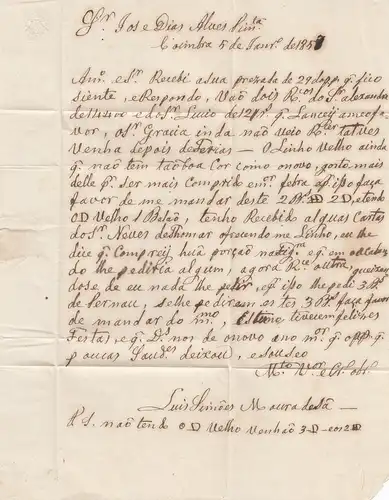 Snr. Jose Dias Alves Pimta
Coimbra 5 de Janro. de 1857
Amo. e Sr. Recebi a sua prezada de 29 do pp. q. fico
siente, e Respondo, Vaõ dois Rcos do Sr. alexandre
de 14400 e do Sr. Lucio de 12 q. Lancey ameo fa
vor, o Sr. Gracia inda naõ veio talves
Venha depois de ferias — O Linho Velho ainda
q. naõ tem taõ boa Cor como o novo, gosto mais
delle p. Ser mais Comprido em febra isso faça
favor de me mandar deste 2 e tendo
O.D Velho 1 Balaõ, tenho Recebido algũas Cartas
do Sr. Neves de Thomar ofrecendo me Linho, eu lhe
dice q. Comprey hũa porçaõ na e q. em
do lhe pediria algum, agora queixan
dose de eu nada lhe pedir, e q. isso lhe pedi 3
de Pernau, se lhe pediram os tes 3 faça favor
de mandar do mmo, felizes
Festas, e q. Ds. nos de o novo ano q. o pp. q.
poucas Saudes deixou, e sou seo
Mto. Vor. e Cr. obr.
Luis Simões Moura de Sá —
P.S. naõ tendo O.D Velho Venhaõ 3 D — e os 2 D